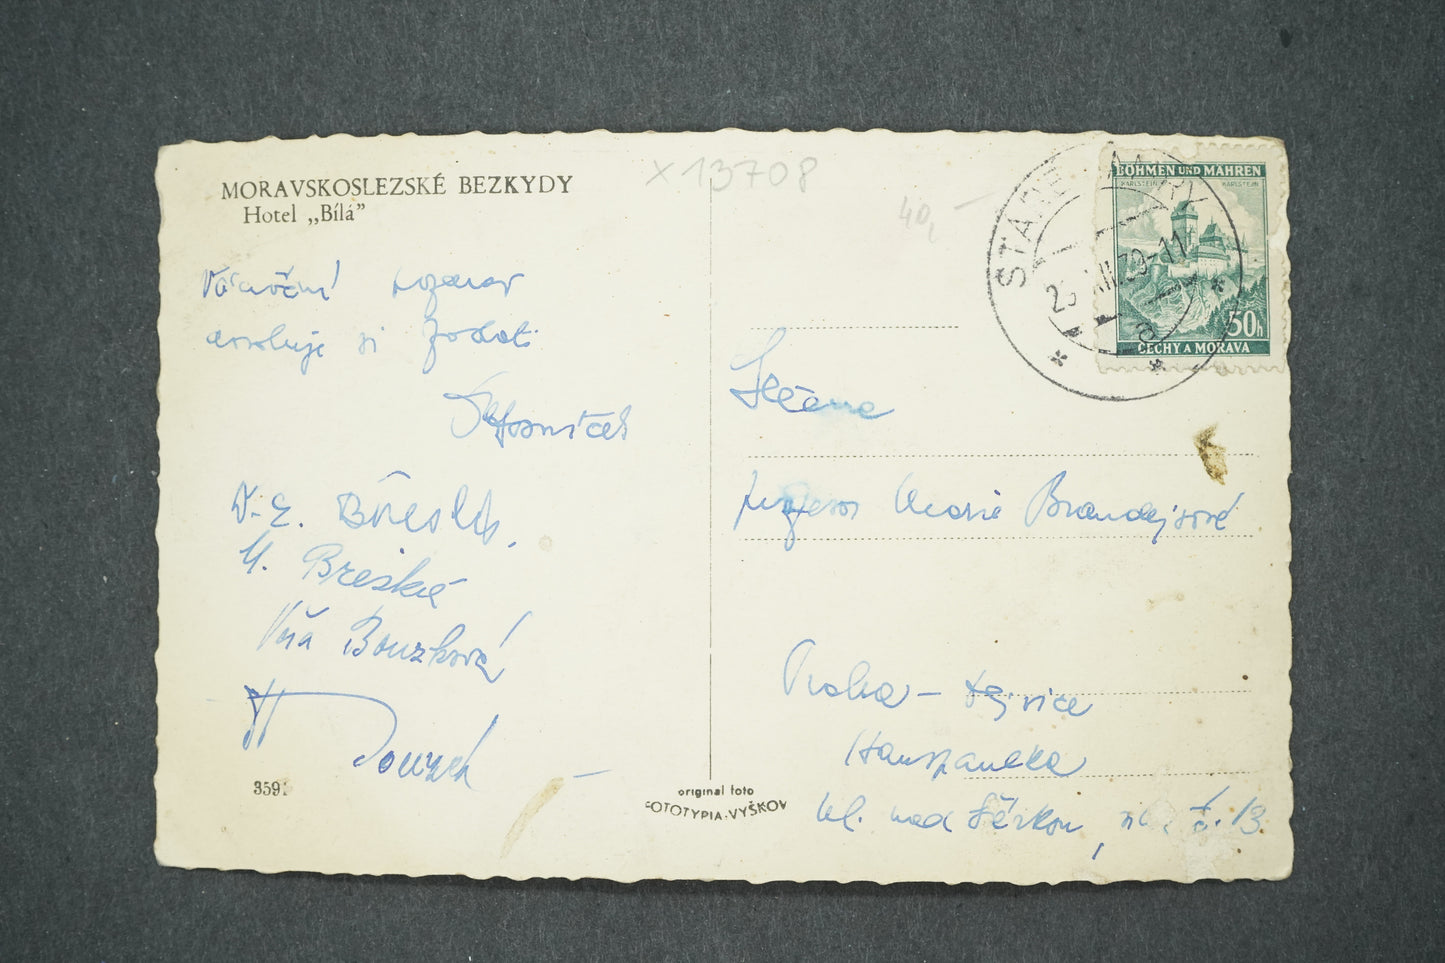 MORAVSKOSLEZSKÉ BEZKYDY
Hotel „Bílá"
x 13708
40,-
STARÉ
XII.39-11
a
BÖHMEN UND MÄHREN
KARLSTEIN KARLŠTEJN
50h
ČECHY A MORAVA
Vánoční pozdrav
dovoluje si
M. Breská
Věra Bouzková
Slečna
profesor Marie Brandejsové
Praha - Dejvice
Hanspaulka
Ul. nad
č. 13
359
original foto
FOTOTYPIA-VYŠKOV